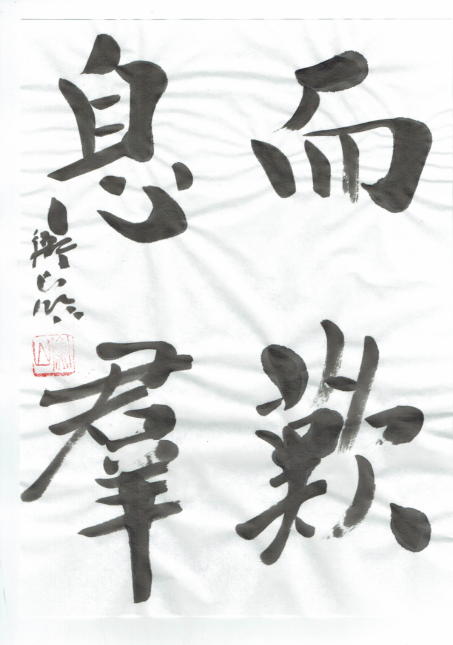 而歎
息羣